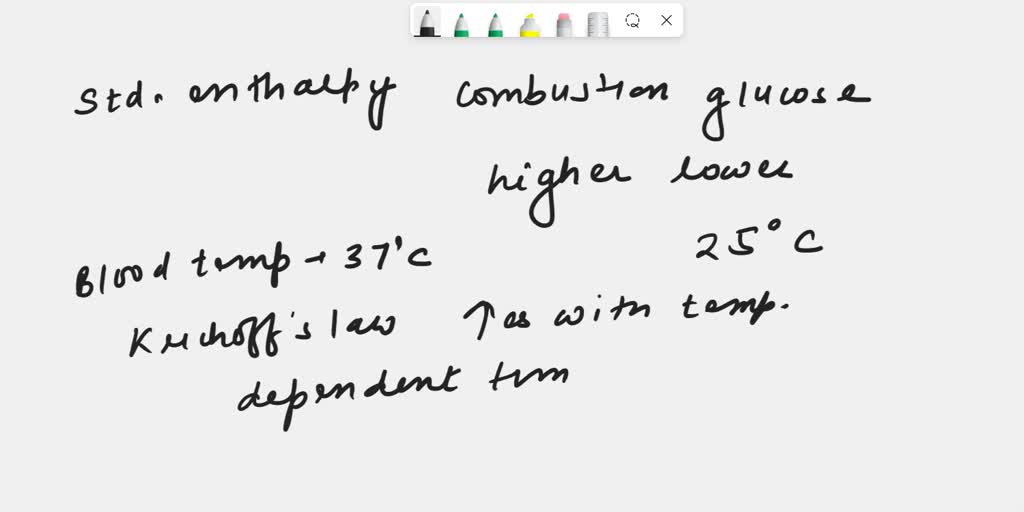 Std. enthalpy combustion glucose
higher lower
Blood temp → 37°C 25°C
Kirchoff's law ↑es with temp.
dependent